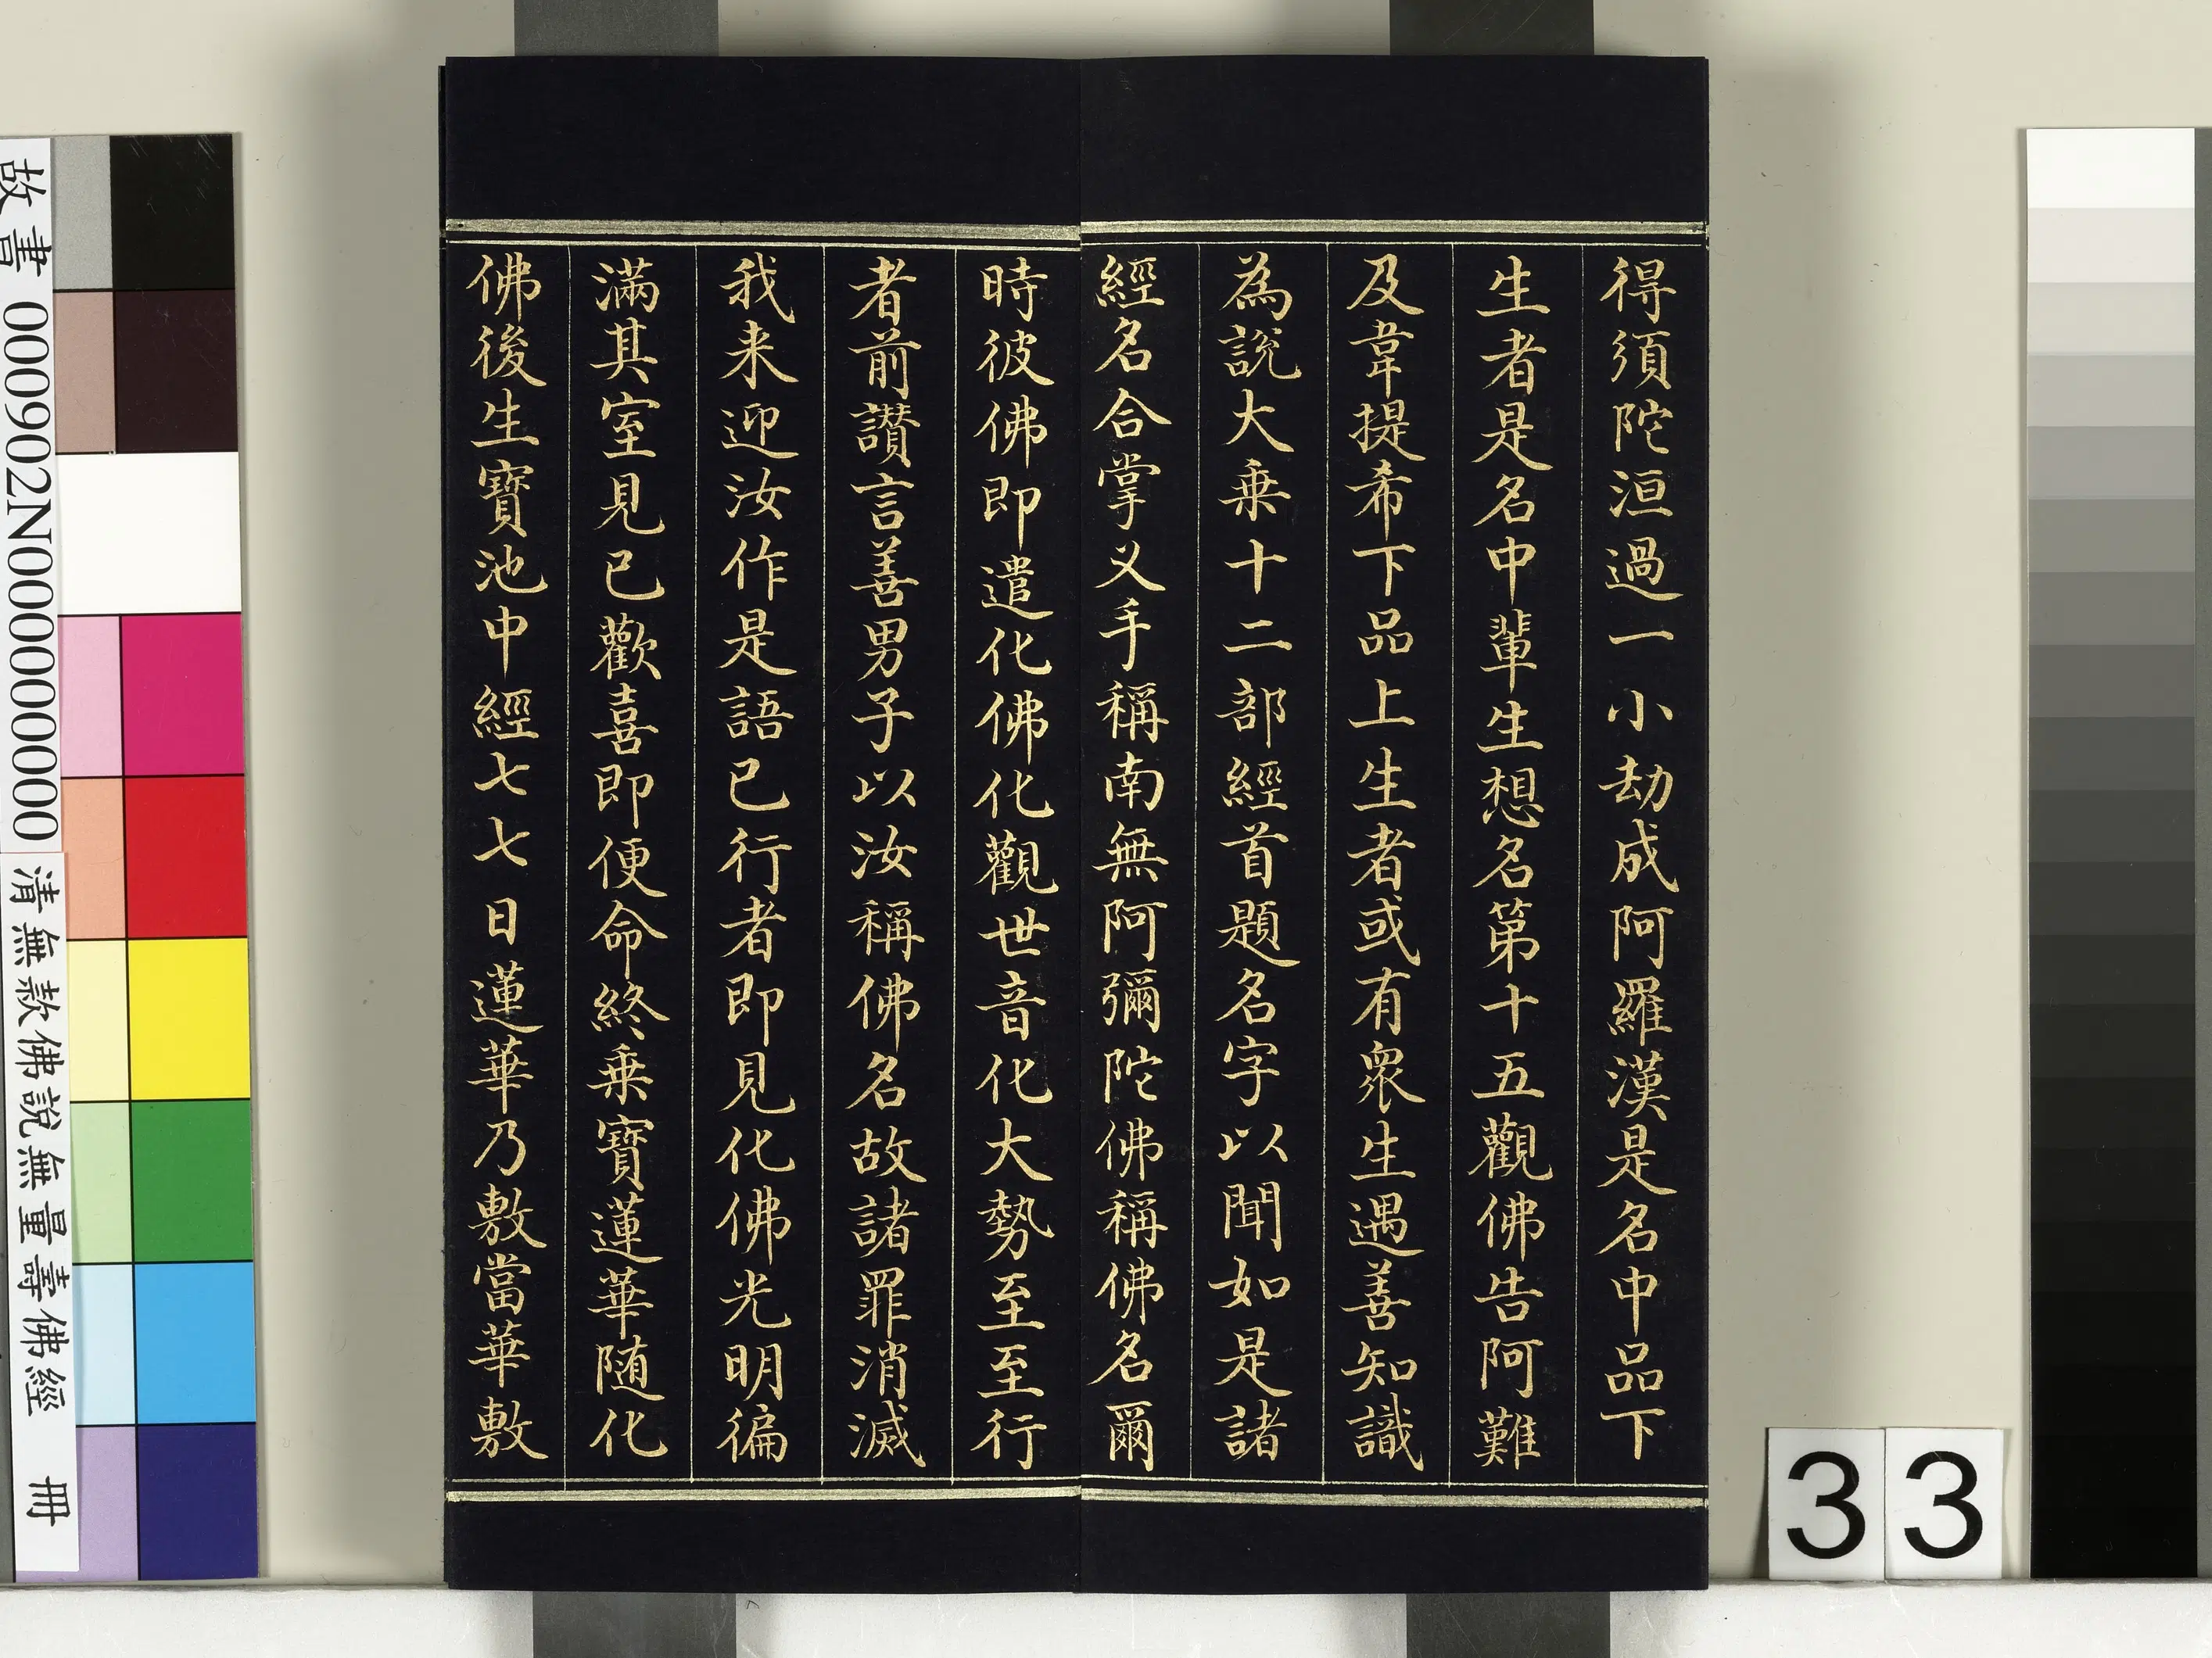 得須陀洹過一小劫成阿羅漢是名中品下
生者是名中輩生想名第十五觀佛告阿難
及韋提希下品上生者或有衆生遇善知識
為說大乗十二部經首題名字以聞如是諸
經名合掌义手稱南無阿彌陀佛稱佛名爾
時彼佛即遣化佛化觀世音化大勢至至行
者前讚言善男子以汝稱佛名故諸罪消滅
我来迎汝作是語已行者即見化佛光明徧
滿其室見已歡喜即便命終乗寶蓮華随化
佛後生寶池中經七七日蓮華乃敷當華敷
故書 000902N000000000
清無款佛說無量壽佛經 冊
33